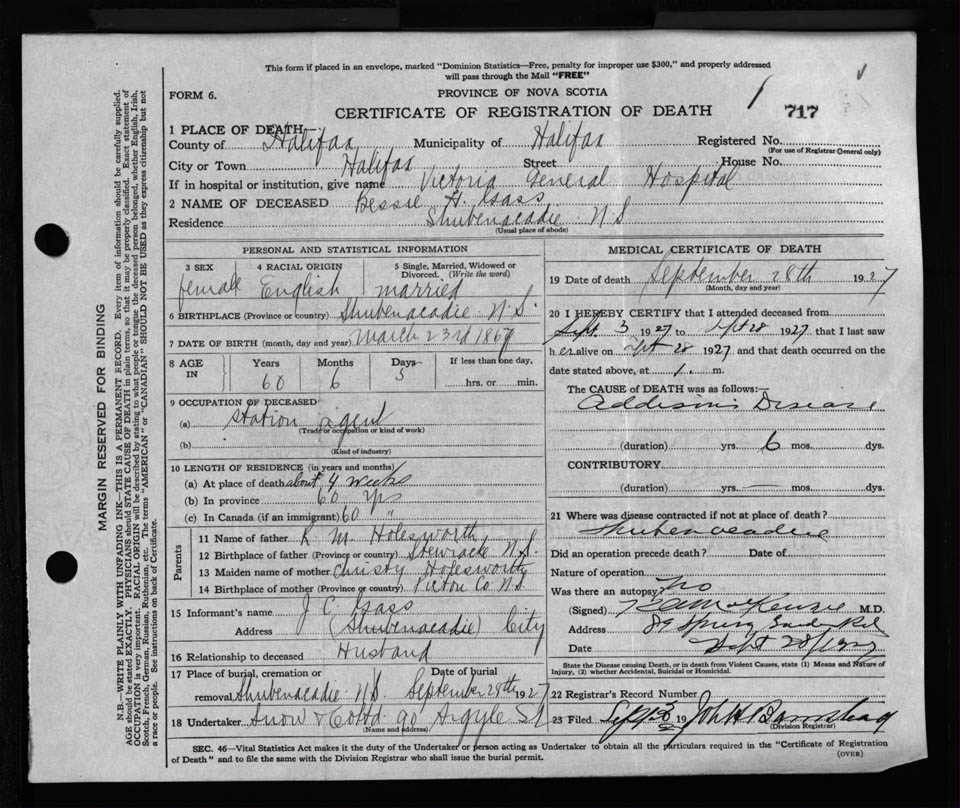 This form if placed in an envelope, marked "Dominion Statistics—Free, penalty for improper use $300," and properly addressed
will pass through the Mail "FREE"
FORM 6.
PROVINCE OF NOVA SCOTIA
CERTIFICATE OF REGISTRATION OF DEATH
717
1 PLACE OF DEATH—
County of Halifax Municipality of Halifax Registered No.
(For use of Registrar General only)
City or Town Halifax Street House No.
If in hospital or institution, give name Victoria General Hospital
2 NAME OF DECEASED Bessie H. Gass
Residence Shubenacadie N.S
(Usual place of abode)
PERSONAL AND STATISTICAL INFORMATION
3 SEX 4 RACIAL ORIGIN 5 Single, Married, Widowed or Divorced. (Write the word)
female English married
6 BIRTHPLACE (Province or country) Shubenacadie N.S.
7 DATE OF BIRTH (month, day and year) March 23rd 1867
8 AGE IN Years Months Days If less than one day,
60 6 5 hrs. or min.
9 OCCUPATION OF DECEASED
(a) Station agent
(Trade or occupation or kind of work)
(b)
(Kind of industry)
10 LENGTH OF RESIDENCE (in years and months)
(a) At place of death about 4 weeks
(b) In province 60 yrs
(c) In Canada (if an immigrant) 60 "
Parents
11 Name of father M. Holesworth
12 Birthplace of father (Province or country) Stewiacke N.S.
13 Maiden name of mother Christy Holesworth
14 Birthplace of mother (Province or country) Pictou Co. N.S
15 Informant's name J. C. Gass
Address (Shubenacadie) City
16 Relationship to deceased Husband
17 Place of burial, cremation or Date of burial
removal Shubenacadie N.S. September 28th 1927
18 Undertaker Snow & Co Ltd 90 Argyle St
(Name and address)
MEDICAL CERTIFICATE OF DEATH
19 Date of death September 28th 1927
(Month, day and year)
20 I HEREBY CERTIFY that I attended deceased from
Sept. 3 1927 to Sept 28 1927, that I last saw
her alive on Sept 28 1927 and that death occurred on the
date stated above, at 1. m.
The CAUSE of DEATH was as follows:—
Addison's Disease
(duration) yrs. 6 mos. dys.
CONTRIBUTORY
(duration) yrs. — mos. dys.
21 Where was disease contracted if not at place of death?
Shubenacadie
Did an operation precede death? Date of
Nature of operation
Was there an autopsy? No
(Signed) MacKenzie M.D.
Address 89 Spring Garden Rd
Date Sept 28/1927
State the Disease causing Death, or in death from Violent Causes, state (1) Means and Nature of Injury, (2) whether Accidental, Suicidal or Homicidal.
22 Registrar's Record Number
23 Filed Sept 19
(Division Registrar)
SEC. 46—Vital Statistics Act makes it the duty of the Undertaker or person acting as Undertaker to obtain all the particulars required in the "Certificate of Registration
of Death" and to file the same with the Division Registrar who shall issue the burial permit.
(OVER)
MARGIN RESERVED FOR BINDING
N.B.—WRITE PLAINLY WITH UNFADING INK—THIS IS A PERMANENT RECORD. Every item of information should be carefully supplied.
AGE should be stated EXACTLY. PHYSICIANS should STATE CAUSE OF DEATH in plain terms, so that it may be properly classified. Exact statement of
OCCUPATION is very important. RACIAL ORIGIN will be described by stating to what people or tongue the deceased person belonged, whether English, Irish,
Scotch, French, German, Russian, Ruthenian, etc. The terms "AMERICAN" or "CANADIAN" SHOULD NOT BE USED as they express citizenship but not
a race or people. See instructions on back of Certificate.